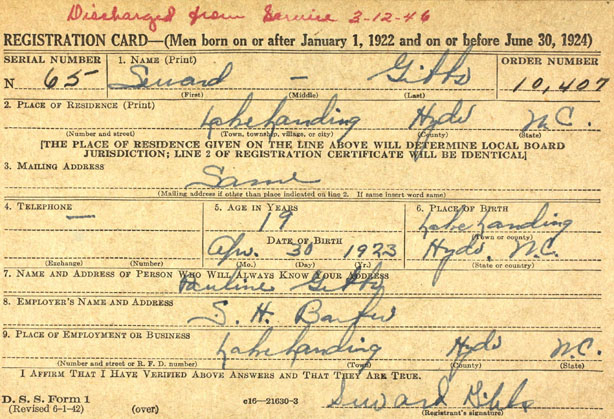 Discharged from Service 3-12-46
REGISTRATION CARD—(Men born on or after January 1, 1922 and on or before June 30, 1924)
SERIAL NUMBER 1. NAME (Print) ORDER NUMBER
N 65 Seward – Gibbs 10,407
(First) (Middle) (Last)
2. PLACE OF RESIDENCE (Print)
Lake Landing Hyde N.C.
(Number and street) (Town, township, village, or city) (County) (State)
[THE PLACE OF RESIDENCE GIVEN ON THE LINE ABOVE WILL DETERMINE LOCAL BOARD
JURISDICTION; LINE 2 OF REGISTRATION CERTIFICATE WILL BE IDENTICAL]
3. MAILING ADDRESS
Same
(Mailing address if other than place indicated on line 2. If same insert word same)
4. TELEPHONE 5. AGE IN YEARS 6. PLACE OF BIRTH
— 19 Lake Landing
DATE OF BIRTH (Town or county)
Apr. 30 1923 Hyde, N.C.
(Exchange) (Number) (Mo.) (Day) (Yr.) (State or country)
7. NAME AND ADDRESS OF PERSON WHO WILL ALWAYS KNOW YOUR ADDRESS
Pauline Gibbs
8. EMPLOYER'S NAME AND ADDRESS
S. H.
9. PLACE OF EMPLOYMENT OR BUSINESS
Lake Landing Hyde N.C.
(Number and street or R. F. D. number) (Town) (County) (State)
I AFFIRM THAT I HAVE VERIFIED ABOVE ANSWERS AND THAT THEY ARE TRUE.
D. S. S. Form 1
(Revised 6-1-42) (over) c16—21630-3 Seward Gibbs
(Registrant's signature)